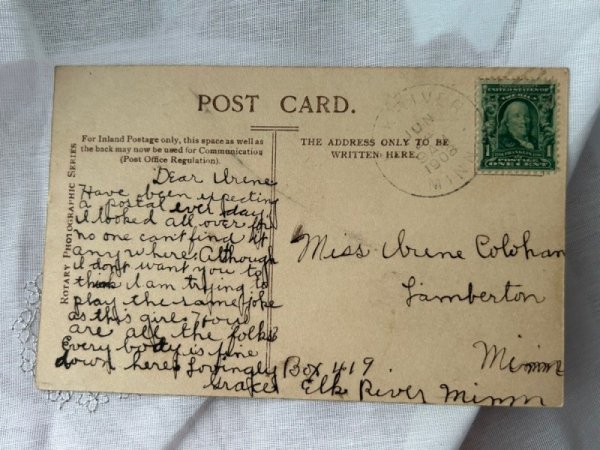 POST CARD.
For Inland Postage only, this space as well as
the back may now be used for Communication
(Post Office Regulation).
THE ADDRESS ONLY TO BE
WRITTEN HERE.
ROTARY PHOTOGRAPHIC SERIES
RIVER
JUN
1908
MINN
UNITED STATES OF AMERICA
1 1
POSTAGE ONE CENT
Dear Irene
Have been expecting
a postal ever day,
I looked all over for
no one cant find it
anywhere. Although
I dont want you to
think I am trying to
play the same joke
as this girl. How
are all the folks
Every body is fine
down here. Lovingly
Grace
Box 419
Elk River Minn
Miss Irene Colohan
Lamberton
Minn